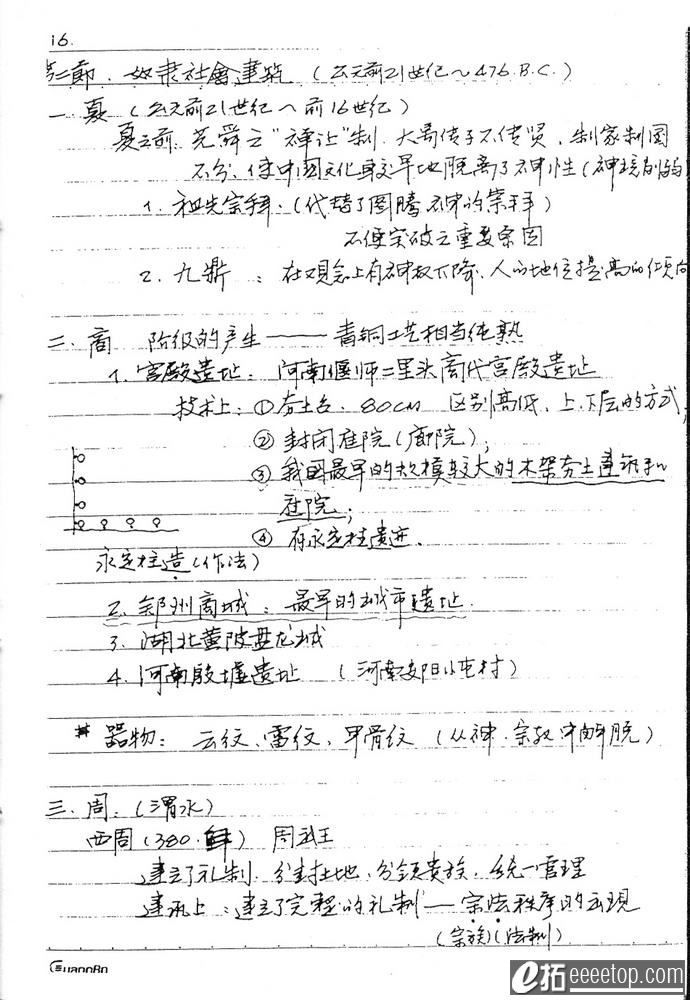 16.
第二節. 奴隶社會建筑 (公元前21世纪～476.B.C.)
一 夏 (公元前21世纪～前16世纪)
夏之前 尧舜之"禅让"制. 大哥传子不传贤, 制家制国
不分, 使中国文化较早地脱离了神性(神
1. 祖先宗拜. (代替了图腾神的崇拜)
不使突破之重要原因
2. 九鼎 : 在观念上有神权下降、人的地位提高的倾向
二. 商 阶级的产生——青铜工艺相当纯熟
1. 宫殿遗址: 河南偃师二里头商代宫殿遗址
技术上: ①夯土台. 80CM 区别高低、上、下层的方式;
② 封闭庭院(廊院);
③ 我国最早的规模较大的木架夯土建筑和
庭院;
④ 有永定柱遗迹.
永定柱造(作法)
2. 郑州商城: 最早的城市遗址.
3. 湖北黄陂盘龙城
4. 河南殷墟遗址 (河南安阳小屯村)
# 器物: 云纹、雷纹、甲骨纹 (从神.宗教中解脱)
三. 周. (渭水)
西周 (380. 周武王
建立了礼制. 分封土地, 分领貴族. 统一管理
建筑上: 建立了完整的礼制——宗法秩序的出现
(宗族)(法制)
GuangBo
e拓 eeeetop.com